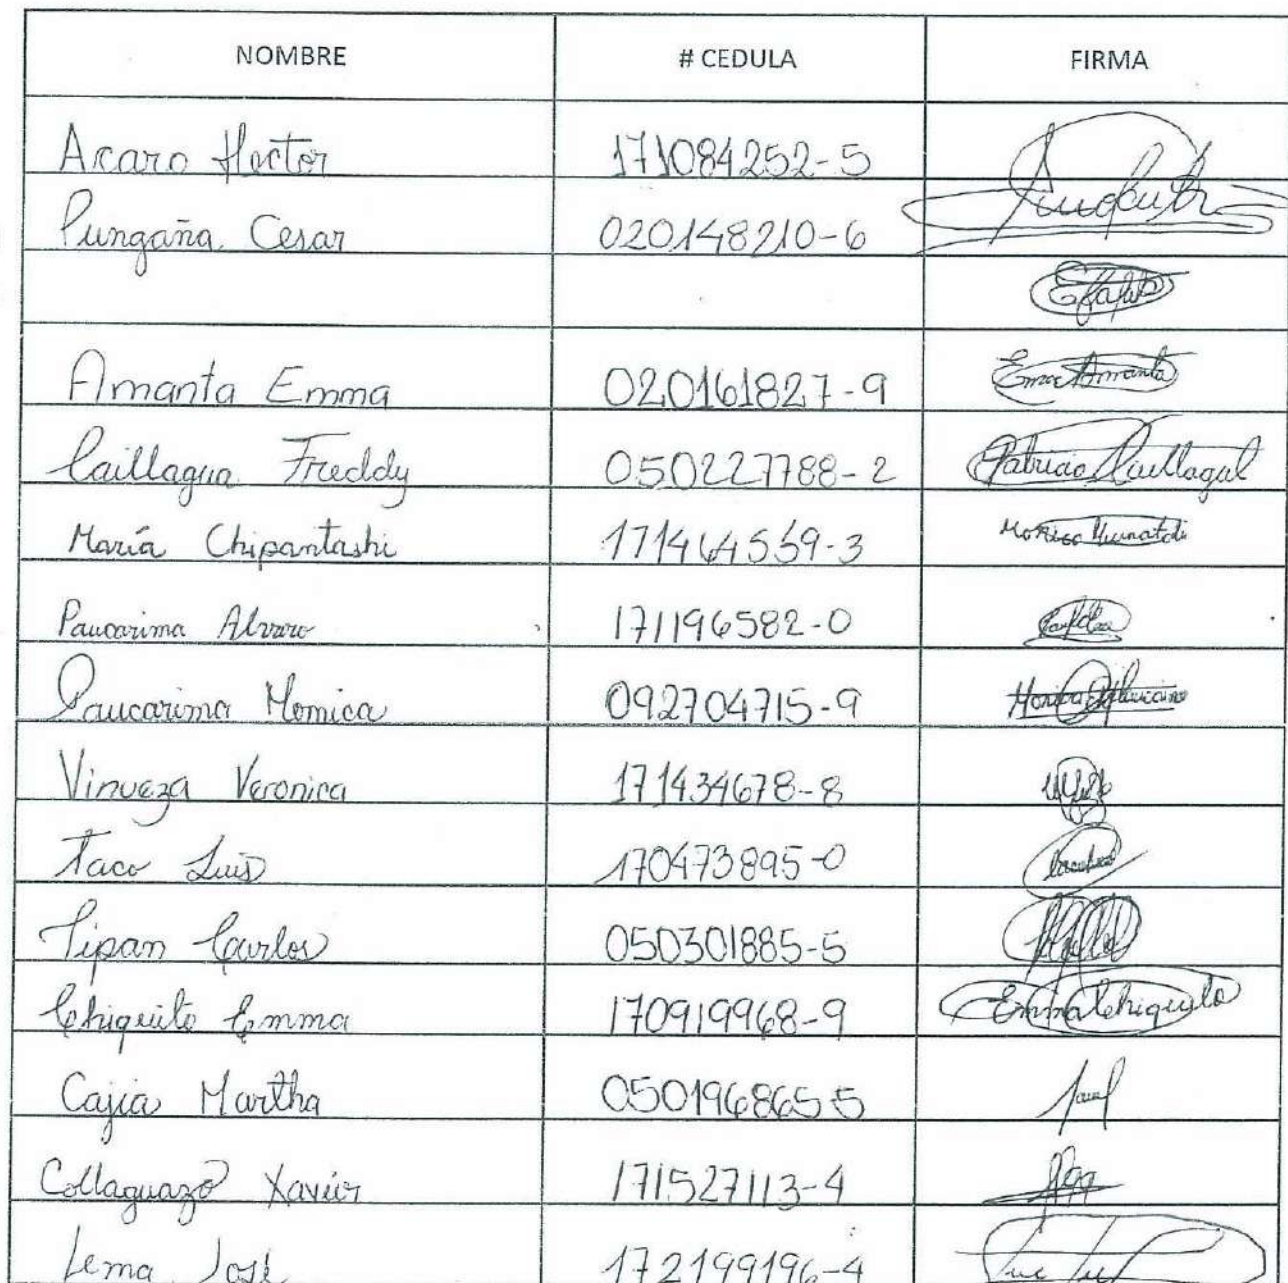 NOMBRE # CEDULA FIRMA
Acaro Hector 171084252-5
Pungaña Cesar 020148210-6
Amanta Emma 020161827-9 Emma Amanta
Caillagua Freddy 050227788-2 Patricio Caillagua
María Chipantashi 171464559-3
Paucarima Alvaro 171196582-0
Paucarima Monica 092704715-9 Monica
Vinueza Veronica 171434678-8
Taco Luis 170473895-0
Tipan Carlos 050301885-5
Chiquito Emma 170919968-9 Emma Chiquito
Cajia Martha 050196865-5
Collaguazo Xavier 171527113-4
Lema José 172199196-4